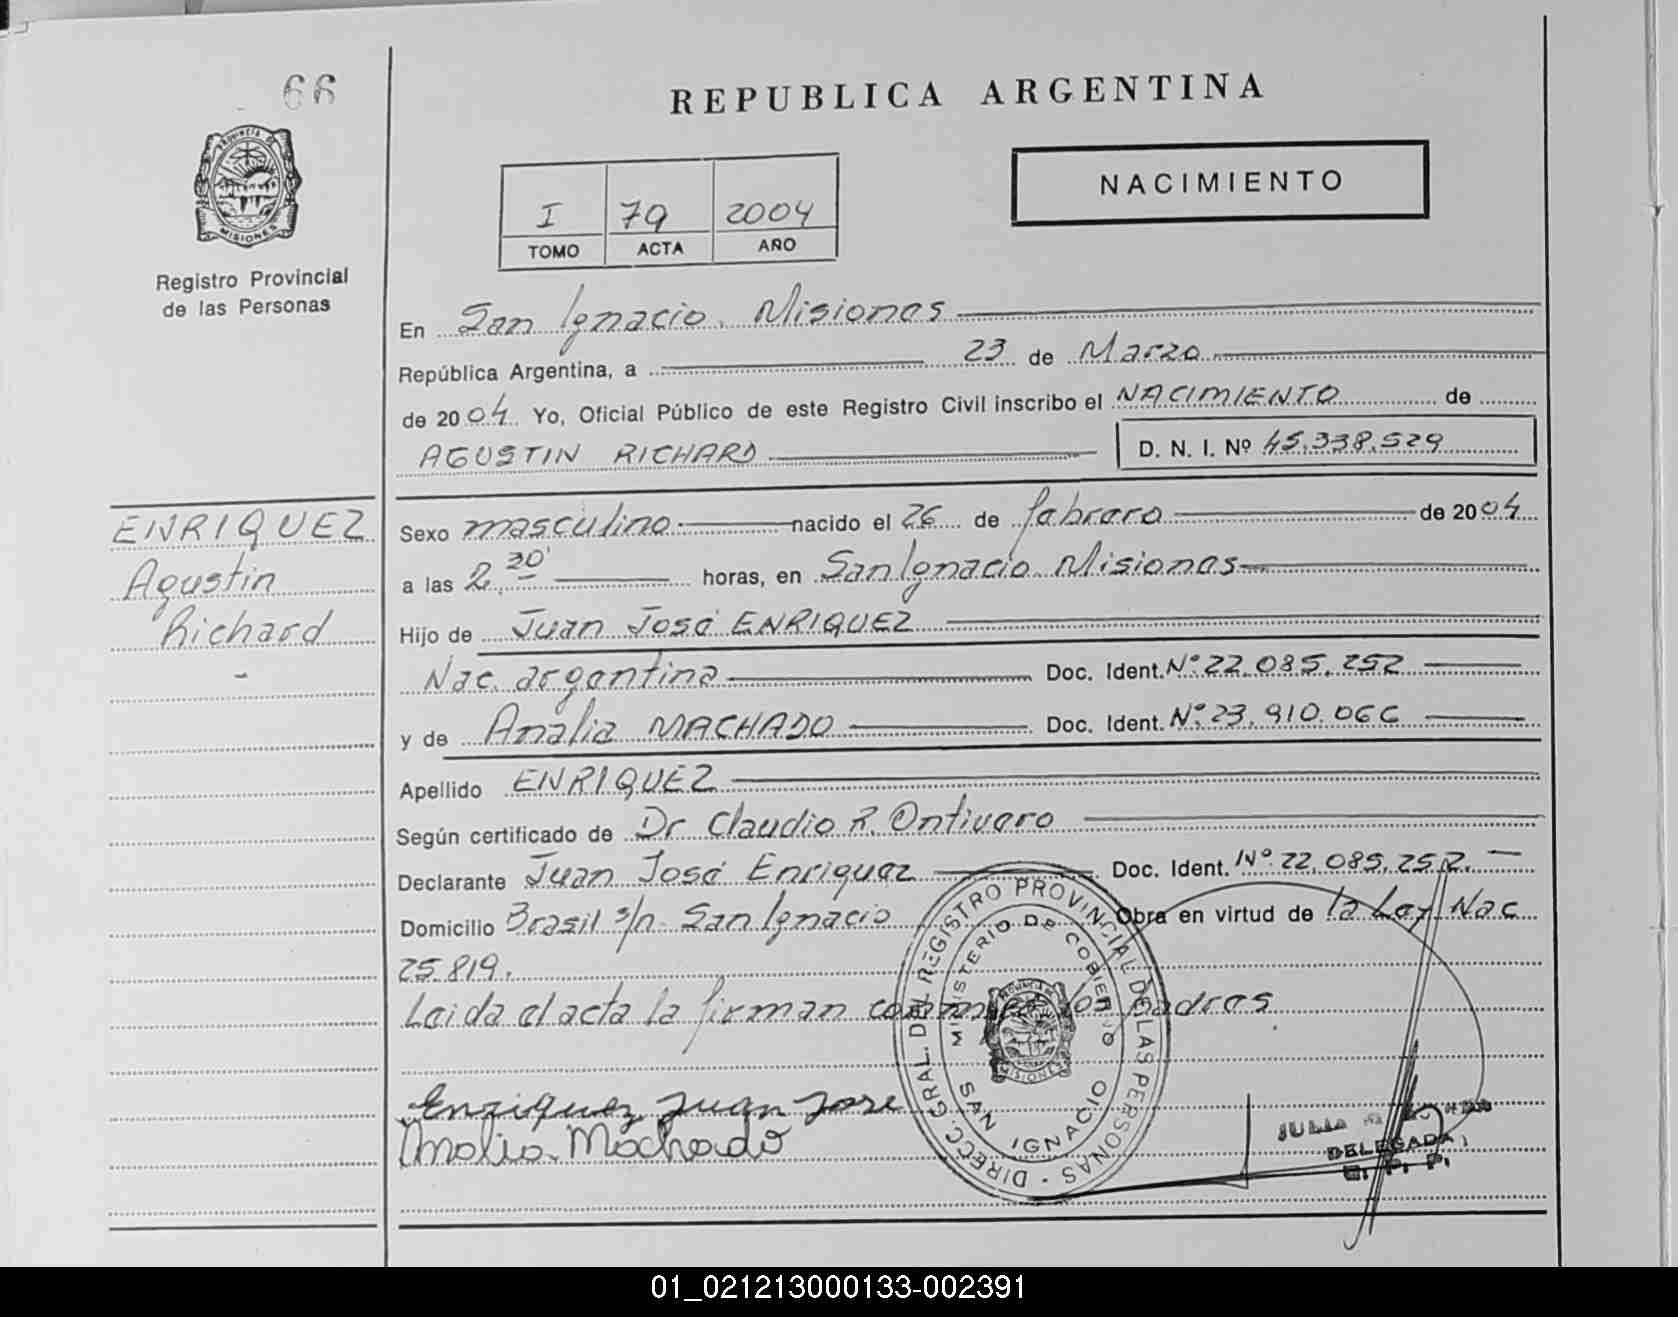 66
REPUBLICA ARGENTINA
PROVINCIA DE
MISIONES
Registro Provincial
de las Personas
I 79 2004
TOMO ACTA AÑO
NACIMIENTO
En San Ignacio. Misiones
República Argentina, a 23 de Marzo
de 2004. Yo, Oficial Público de este Registro Civil inscribo el NACIMIENTO de
AGUSTIN RICHARD D. N. I. Nº 45.338.529
ENRIQUEZ
Agustin
Richard
-
Sexo masculino nacido el 26 de febrero de 2004
a las 2,30' horas, en San Ignacio Misiones
Hijo de Juan José ENRIQUEZ
Nac. argentina Doc. Ident. Nº 22.085.252
y de Analia MACHADO Doc. Ident. Nº 23.910.066
Apellido ENRIQUEZ
Según certificado de Dr Claudio R. Ontivero
Declarante Juan José Enriquez Doc. Ident. Nº 22.085.252.
Domicilio Brasil s/n San Ignacio Obra en virtud de la Ley Nac
25.819.
Leida el acta la firman conmigo los padres
Enriquez Juan Jose
Analia Machado
DIRECC. GRAL. DEL REGISTRO PROVINCIAL DE LAS PERSONAS
MINISTERIO DE GOBIERNO
PROVINCIA DE
MISIONES
SAN IGNACIO
JULIA
DELEGADA
01_021213000133-002391